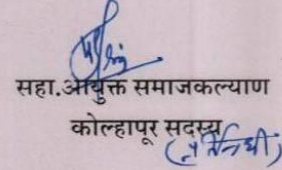 सहा.आयुक्त समाजकल्याण
कोल्हापूर सदस्य
(प्रतिनिधी)